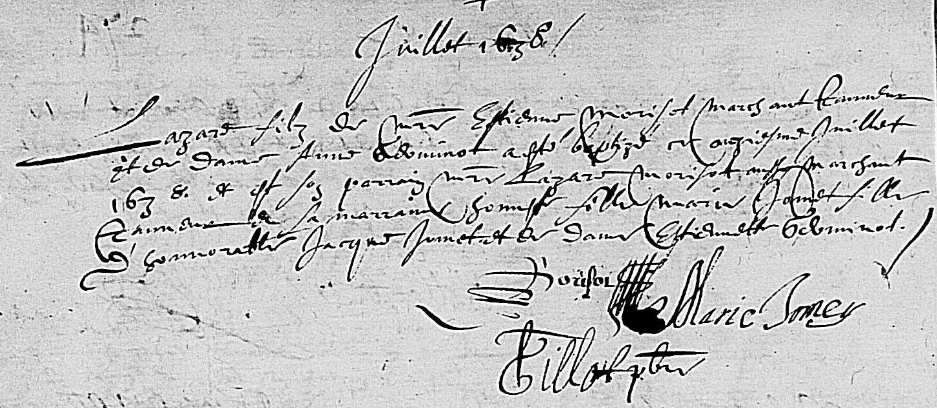 Juillet 1638 /
Lazare filz de Mre Estienne Morisot marchant tanneur
et de dame Anne Edouinot a esté baptizé ce onziesme Juillet
1638. & est son parrain Mre Lazare Morisot aussy marchant
tanneur & sa marraine honneste fille Marie Jomet fille
d'honnorable Jacque Jometet et de dame Estiennette Edouinot.
Morisot Marie Jomey
Gillot pbre